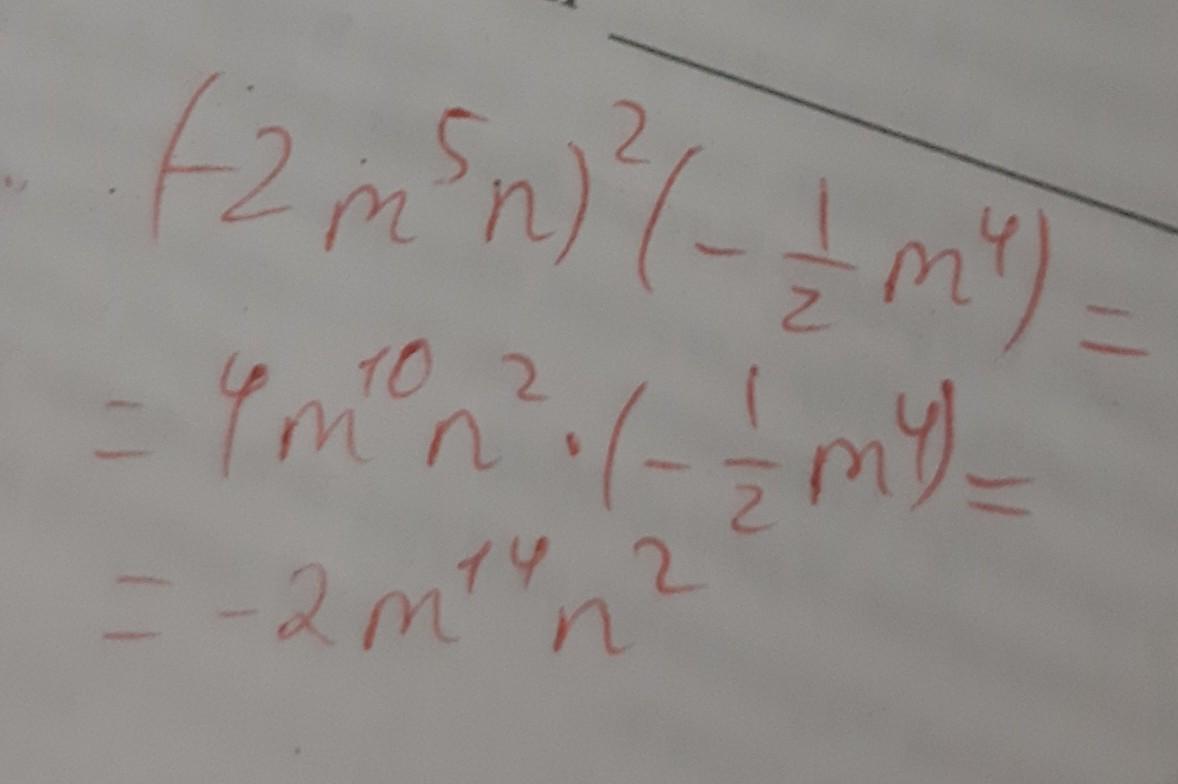 (-2m⁵n)²(-½m⁴)=
=4m¹⁰n²·(-½m⁴)=
=-2m¹⁴n²